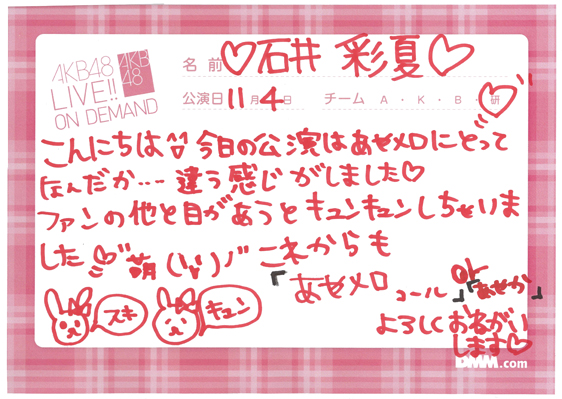 AKB48
LIVE!!
ON DEMAND
AKB
48
名前 ♡石井 彩夏♡
公演日 11月4日 チーム A・K・B・研
こんにちは 今日の公演はあせメロにとって
なんだか… 違う感じがしました♡
ファンの他と目があうとキュンキュンしちゃいま
した♡ 萌 これからも
「あせメロ コール」 or 「あせか」
よろしくお名がい
します♡
スキ
キュン
DMM.com